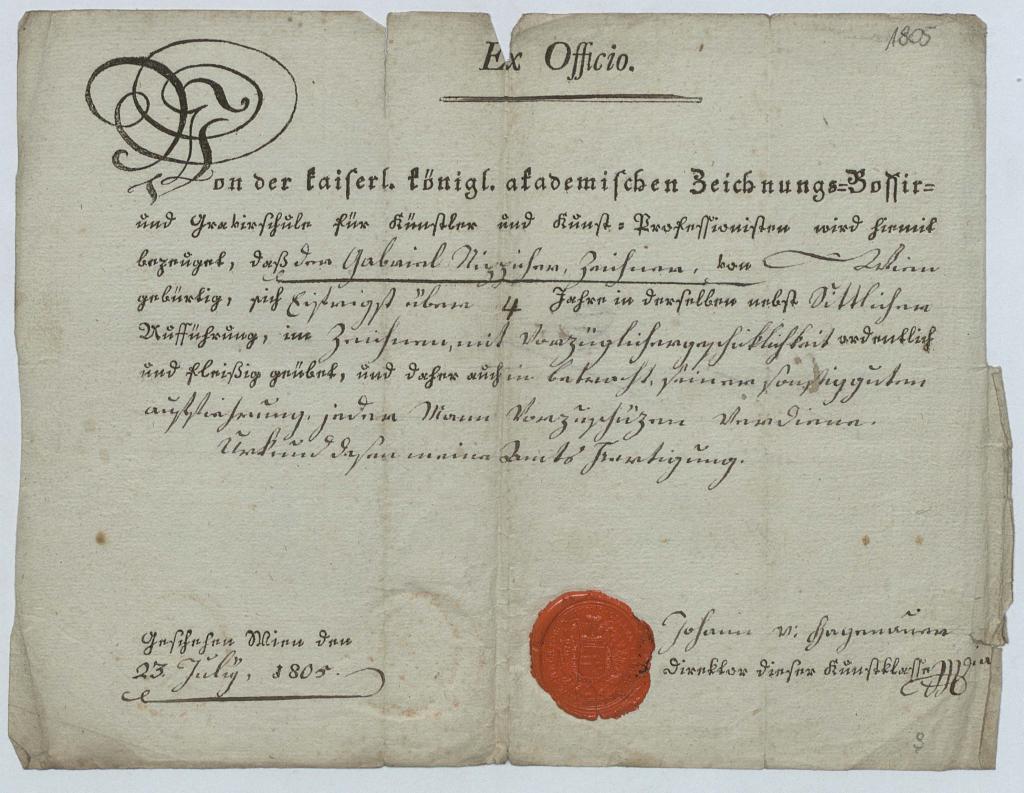 1805
Ex Officio.
Von der kaiserl. königl. akademischen Zeichnungs=Bossir=
und Gravirschule für Künstler und Kunst=Professionisten wird hiemit
bezeuget, daß der Gabriel Zeichner, von Wien
gebürtig, sich Eifrigst über 4 Jahre in derselben nebst Sittlicher
Aufführung, im Zeichnen, mit Vorzüglicher geschicklichkeit ordentlich
und fleißig geübet, und daher auch in betracht, seiner sonstig guten
aufführung, jeder Mann Vorzuschüzen Verdiene.
Urkund dessen meine Amts Fertigung.
Geschehen Wien den
23. July, 1805.
Johann v: Hagenauer
Direktor dieser Kunstklasse